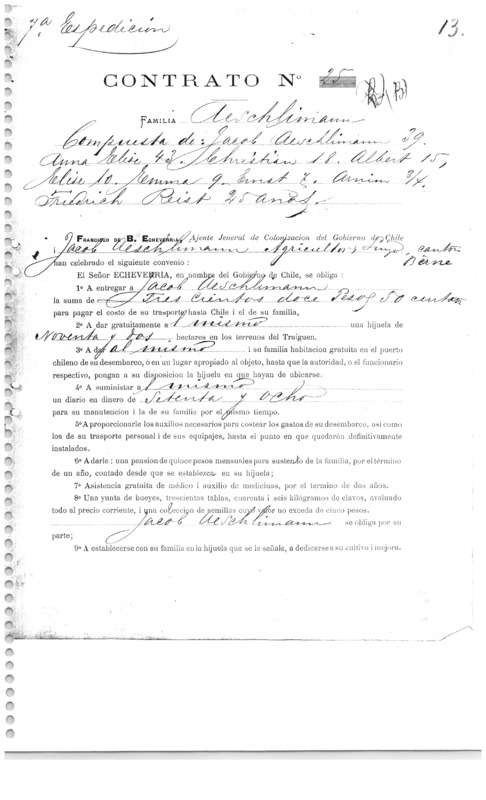 7ª Expedición
13.
CONTRATO Nº 25
FAMILIA Aeschlimann
Compuesta de: Jacob Aeschlimann 39.
Anna Elise 43. Christian 18. Albert 15,
Elise 10. Emma 9. Ernst 7. Armin 3/4.
Friedrich Reist 25 años.
FRANCISCO DE B. ECHEVERRIA, Ajente Jeneral de Colonizacion del Gobierno de Chile
i Jacob Aeschlimann Agricultor, canton Berne
han celebrado el siguiente convenio:
El Señor ECHEVERRIA, en nombre del Gobierno de Chile, se obliga:
1º A entregar a Jacob Aeschlimann
la suma de Tres cientos doce Pesos 50 centavos
para pagar el costo de su trasporte hasta Chile i el de su familia,
2º A dar gratuitamente al mismo una hijuela de
Noventa y dos hectares en los terrenos del Traiguen.
3º A dar al mismo i su familia habitacion gratuita en el puerto
chileno de su desembarco, ó en un lugar apropiado al objeto, hasta que la autoridad, o el funcionario
respectivo, pongan a su disposicion la hijuela en que hayan de ubicarse.
4º A suministar al mismo
un diario en dinero de Setenta y ocho
para su manutencion i la de su familia por el mismo tiempo.
5º A proporcionarle los auxilios necesarios para costear los gastos de su desembarco, asi como
los de su trasporte personal i de sus equipajes, hasta el punto en que quedarán definitivamente
instalados.
6º A darle: una pension de quince pesos mensuales para sustento de la familia, por el término
de un año, contado desde que se establezca en su hijuela;
7º Asistencia gratuita de médico i auxilio de medicinas, por el termino de dos años.
8º Una yunta de bueyes, trescientas tablas, cuarenta i seis kilógramos de clavos, avaluado
todo al precio corriente, i una coleccion de semillas cuyo valor no exceda de cinco pesos.
Jacob Aeschlimann se obliga por su
parte;
9º A establecerse con su familia en la hijuela que se le señale, a dedicarse a su cultivo i mejora.